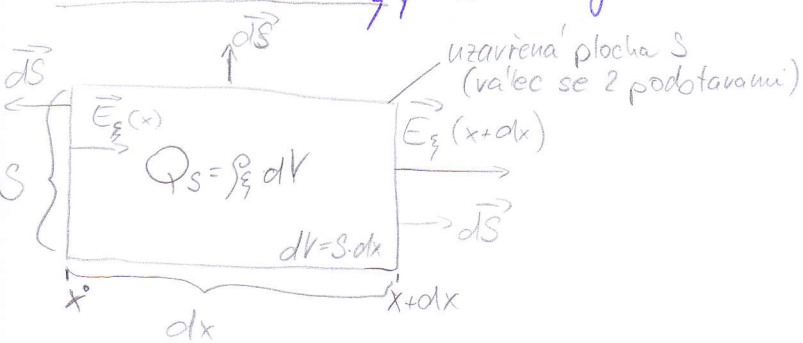 dS
dS
uzavřená plocha S
(válec se 2 podstavami)
E_ξ(x)
E_ξ(x+dx)
S
Q_S = ρ_ξ dV
dS
dV = S·dx
x
x+dx
dx